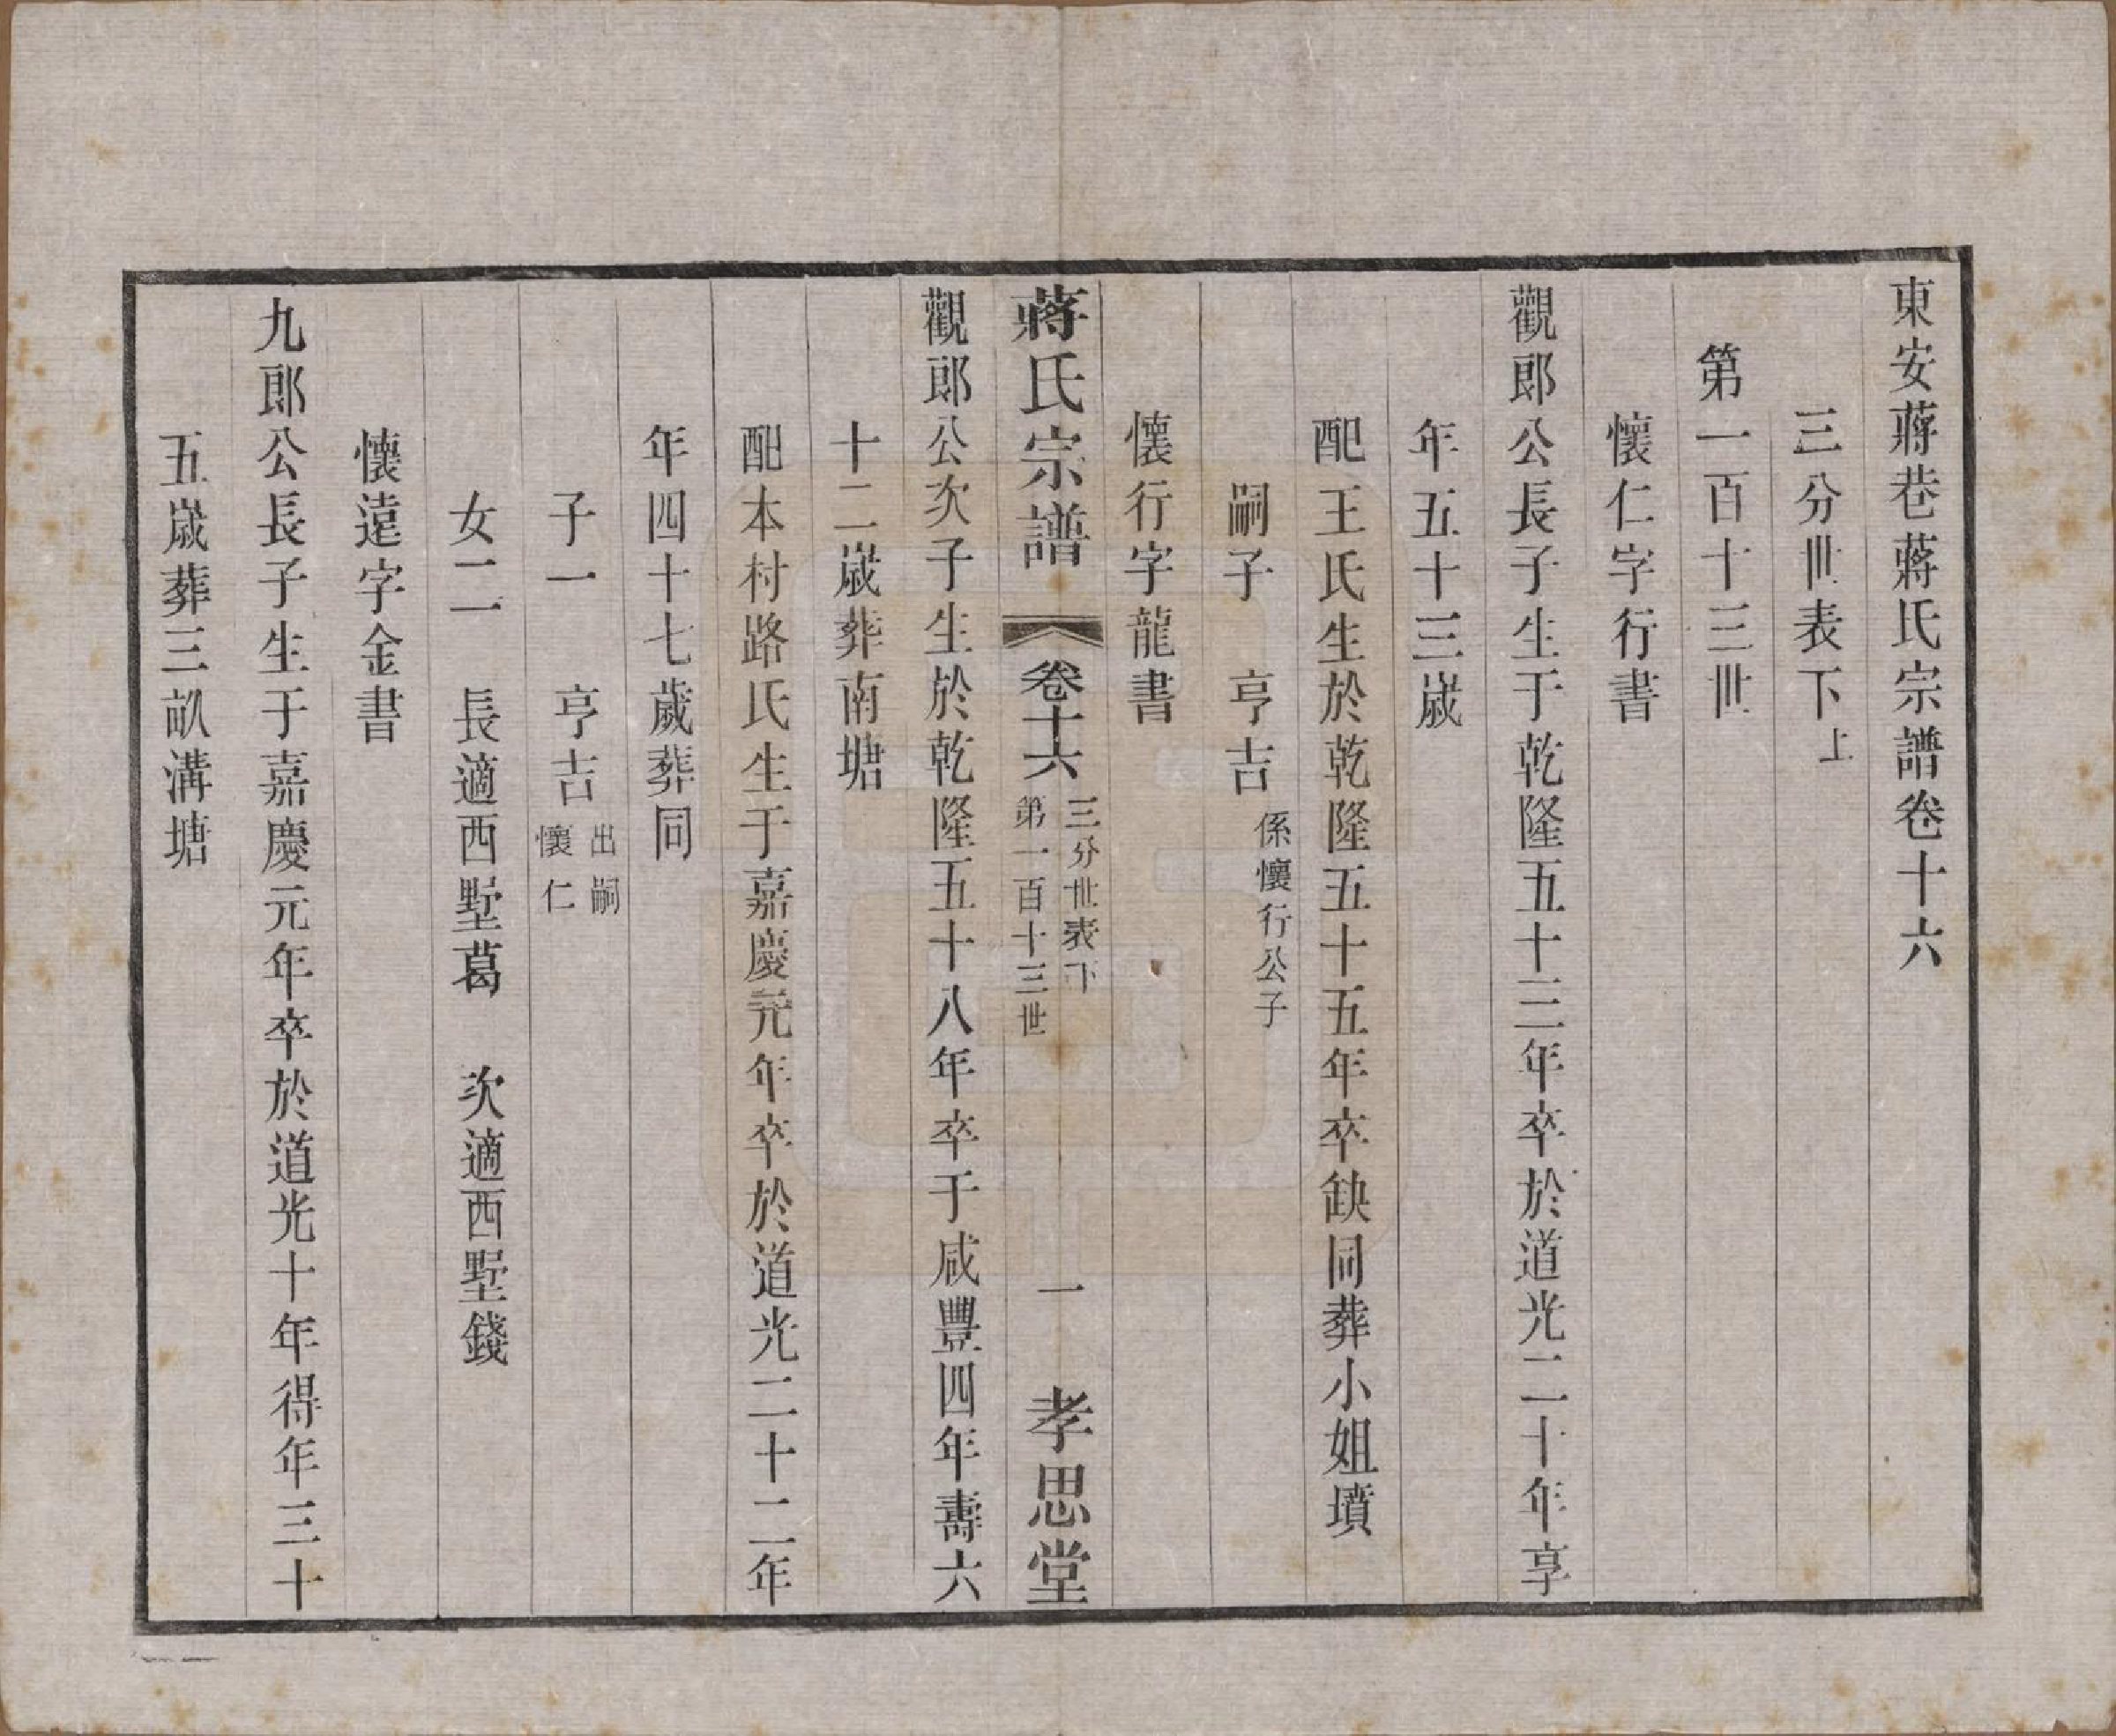 東安蔣巷蔣氏宗譜卷十六
三分世表下上
第一百十三世
懷仁字行書
觀郎公長子生于乾隆五十三年卒於道光二十年享
年五十三歲
配王氏生於乾隆五十五年卒缺同葬小姐墳
嗣子　亨吉係懷行公子
懷行字龍書
蔣氏宗譜　卷十六　三分世表下　第一百十三世　一　孝思堂
觀郎公次子生於乾隆五十八年卒于咸豐四年壽六
十二歲葬南塘
配本村路氏生于嘉慶元年卒於道光二十二年
年四十七歲葬同
子一　亨吉出嗣懷仁
女二　長適西墅葛　次適西墅錢
懷遠字金書
九郎公長子生于嘉慶元年卒於道光十年得年三十
五歲葬三畝溝塘